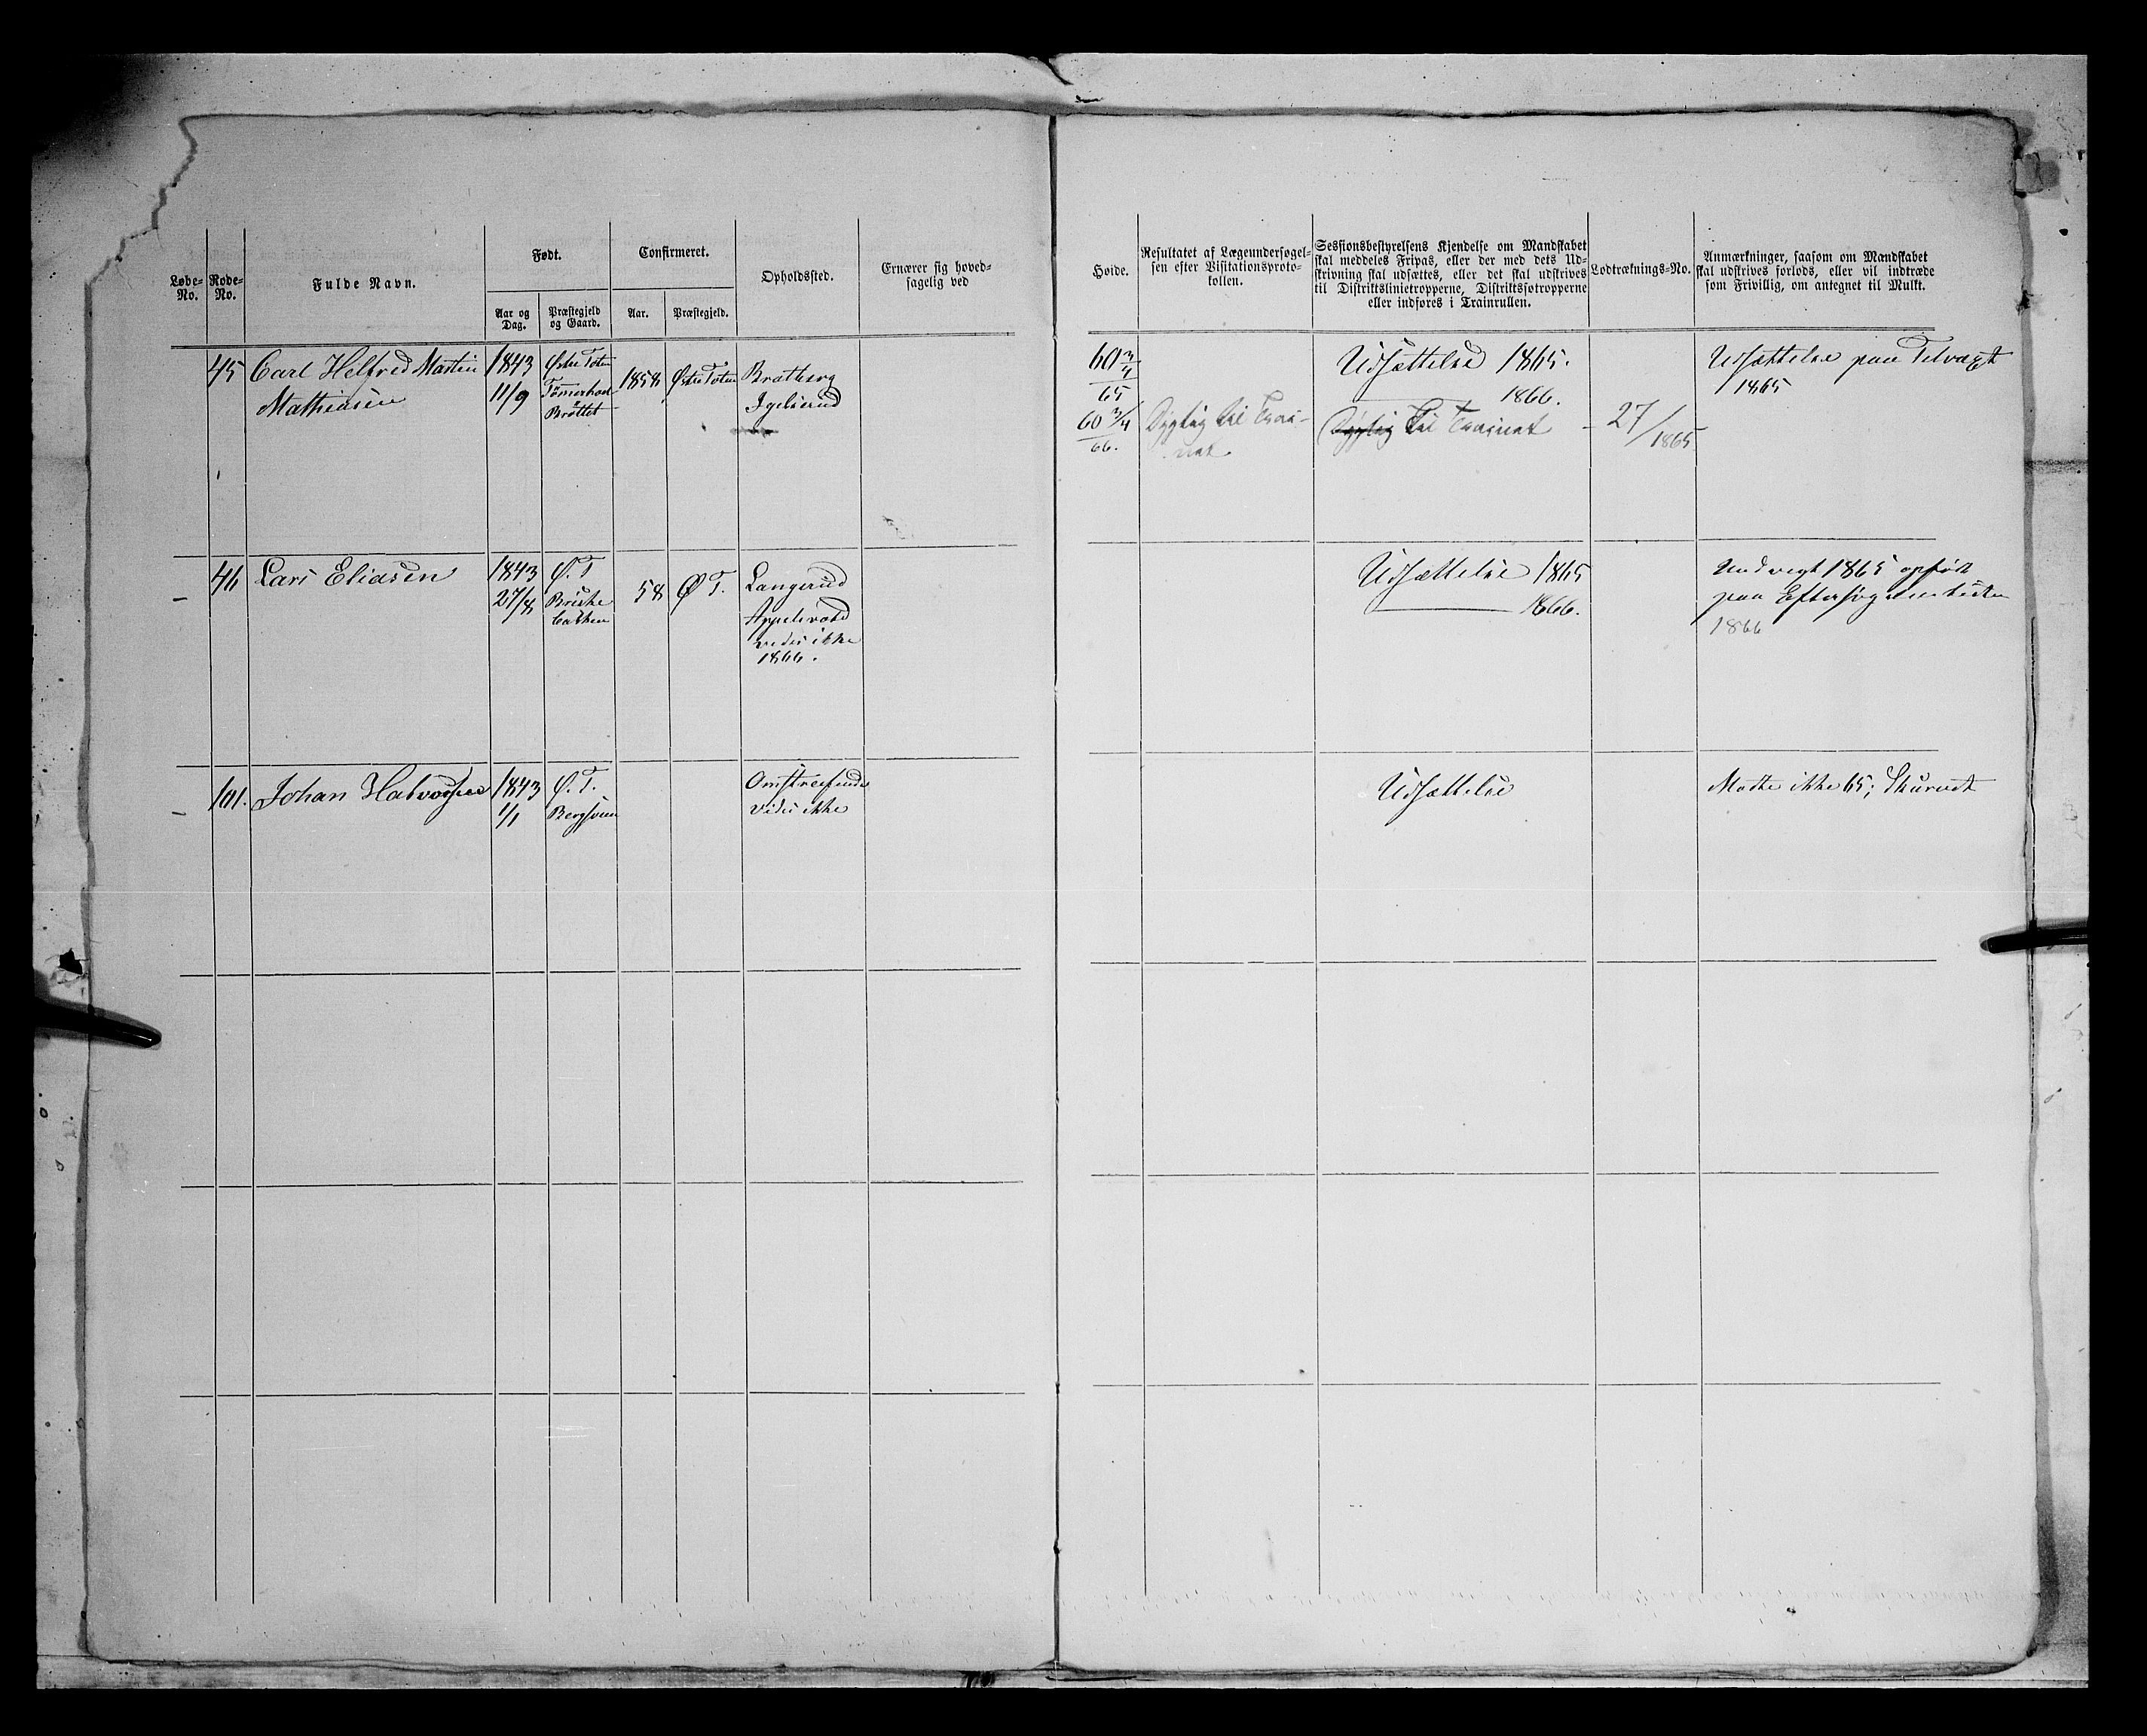 Løbe-No.
Rode-No.
Fulde Navn.
Født.
Aar og Dag.
Præstegjeld og Gaard.
Confirmeret.
Aar.
Præstegjeld.
Opholdssted.
Ernærer sig hoved-
sagelig ved
Høide.
Resultatet af Lægeundersøgel-
sen efter Visitationsproto-
kollen.
Sessionsbestyrelsens Kjendelse om Mandskabet
skal meddeles Fripas, eller der med dets Ud-
skrivning skal udsættes, eller det skal udskrives
til Distriktslinietropperne, Distriktsfotropperne
eller indføres i Trainrullen.
Lodtræknings-No.
Anmærkninger, saasom om Mandskabet
skal udskrives forlods, eller vil indtræde
som Frivillig, om antegnet til Mulkt.
45
Carl Helfred Martin
Mathiesen
1843
11/9
Østre Toten
Brøttet
1858
Østre Toten
Bratberg
60 3/4
65
60 3/4
66.
Dygtig til Trai-
net
Udsættelse 1865.
1866.
Dygtig til Trainet
27/1865
Udsættelse paa
1865
46
Lars Eliasen
1843
27/8
Ø. T
58
Ø T.
Langerud
vides ikke
1866.
Udsættelse 1865
1866.
Undvegt 1865 opført
paa
1866
101.
Johan Halvorsen
1843
1/1
Ø. T.
Bergsvein
Omstreifende
Vides ikke
Udsættelse
Mødte ikke 65;